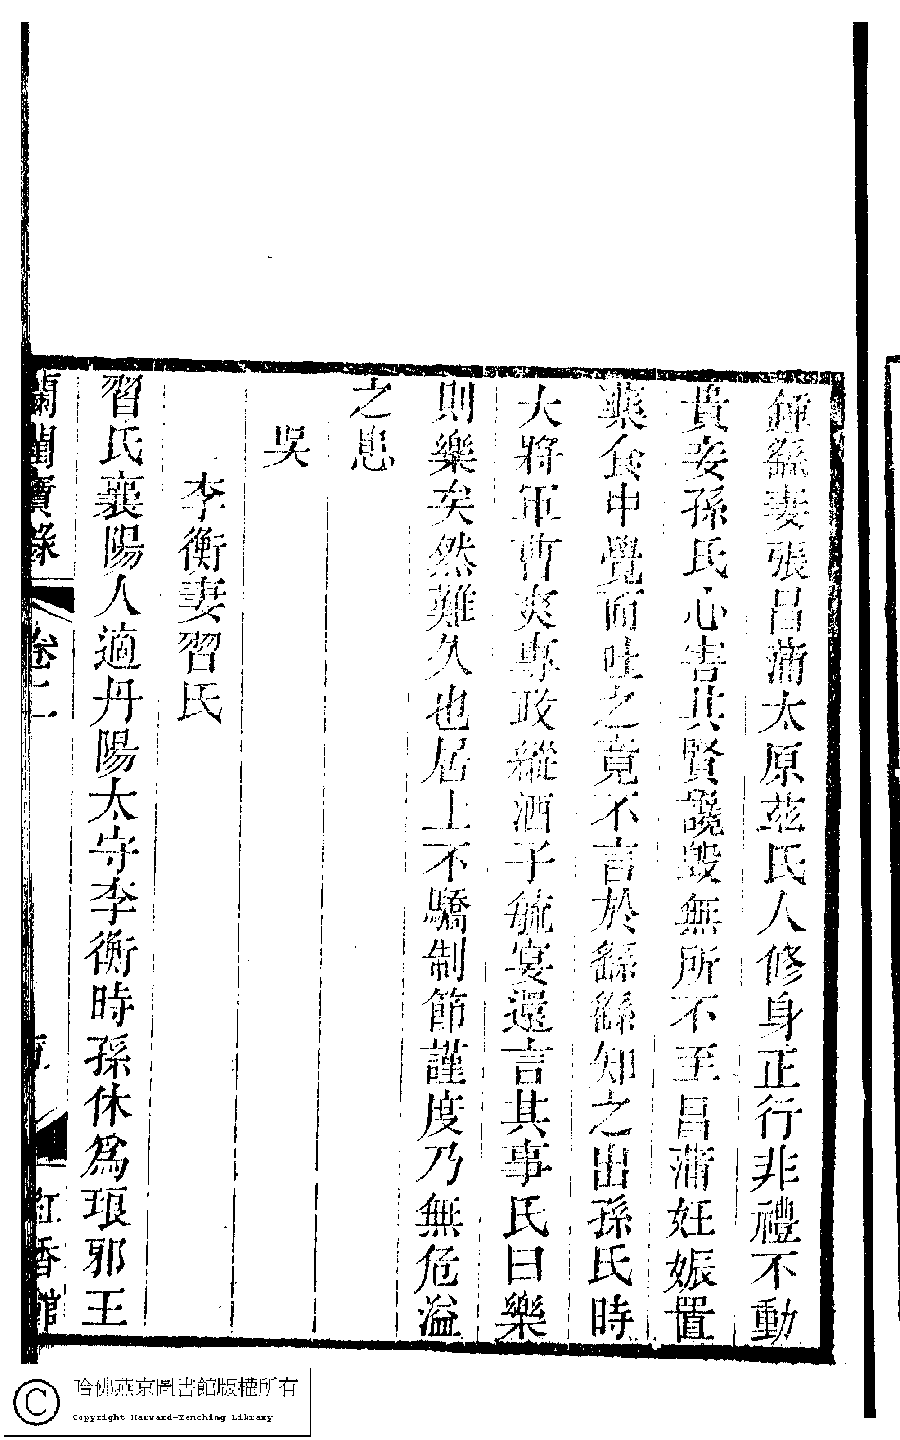 鍾繇妻張昌蒲太原茲氏人修身正行非禮不動
貴妾孫氏心害其賢讒毀無所不至昌蒲妊娠置
藥食中覺而吐之竟不言於繇繇知之出孫氏時
大將軍曹爽專政縱酒子毓宴還言其事氏曰樂
則樂矣然難久也居上不驕制節謹度乃無危溢
之患
吳
李衡妻習氏
習氏襄陽人適丹陽太守李衡時孫休爲琅邪王
蘭閨寶錄
卷二
紅香館
哈佛燕京圖書館版權所有
Copyright Harvard-Yenching Library